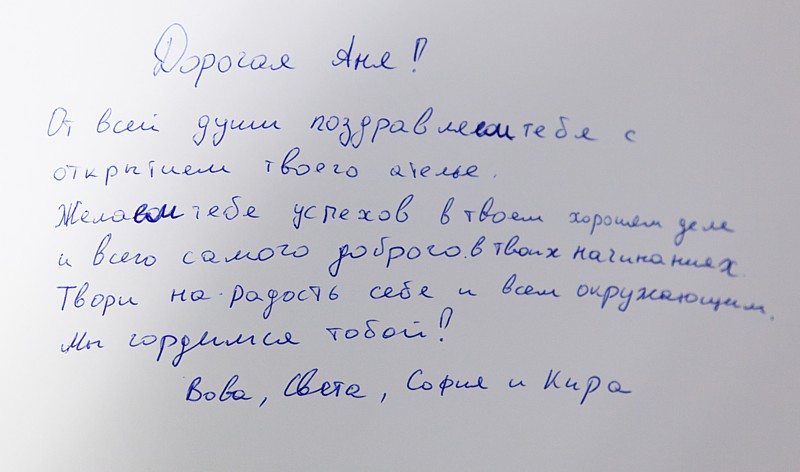 Дорогая Аня!
От всей души поздравляем тебя с
открытием твоего ателье.
Желаем тебе успехов в твоем хорошем деле
и всего самого доброго в твоих начинаниях.
Твори на радость себе и всем окружающим.
Мы гордимся тобой!
Вова, Света, София и Кира